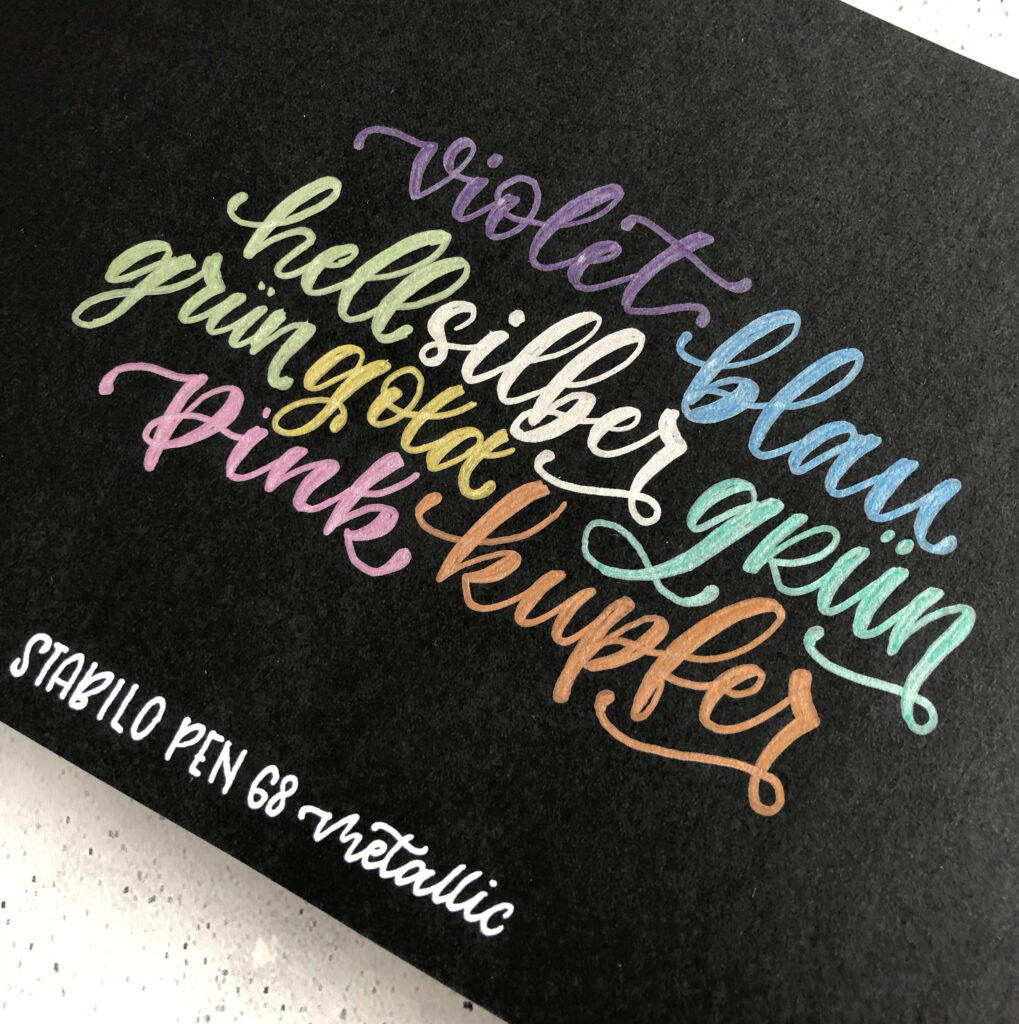 violet
hell silber blau
grün gold grün
Pink kupfer
STABILO PEN 68 metallic